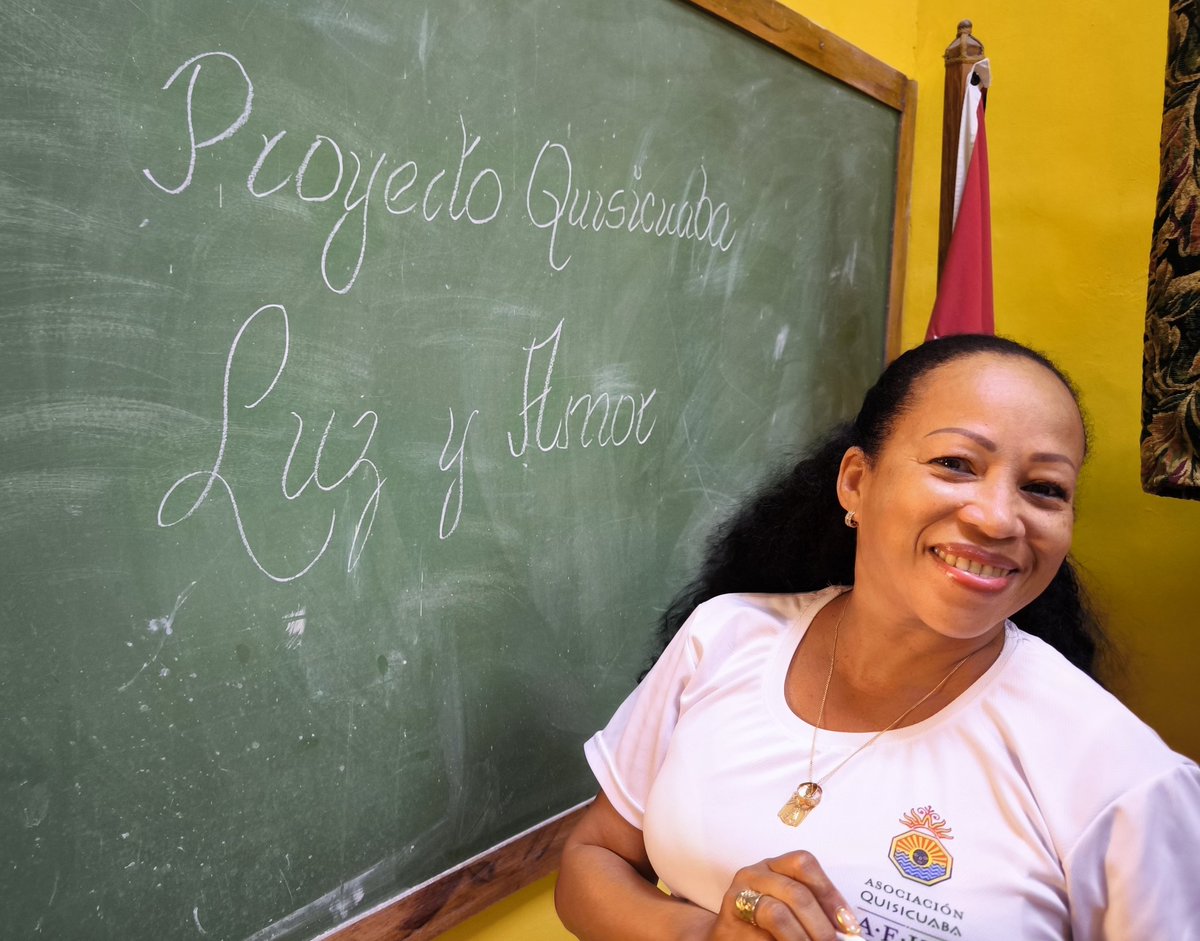 Proyecto Quisicuaba
Luz y Amor
ASOCIACIÓN
QUISICUABA